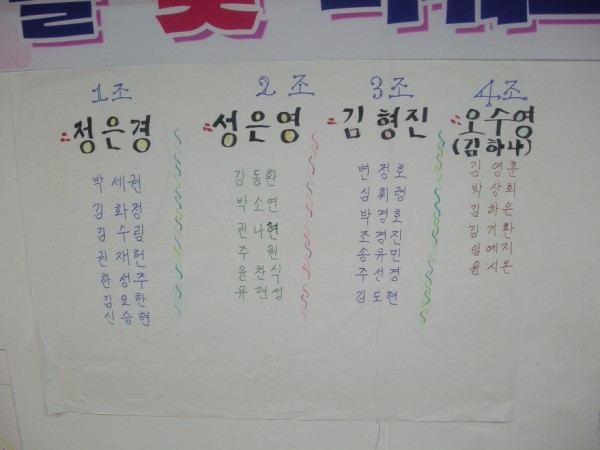 1조
정은경
박세권
김화정
김수림
권재헌
한성주
김요한
신승현
2조
성은영
김동환
박소연
권나현
주원
윤찬식
유현성
3조
김형진
변정호
심휘령
박경호
조경진
송유민
주선경
김도현
4조
오수영
(김하나)
김영훈
박상희
김하은
김기환
엄예지
윤시온